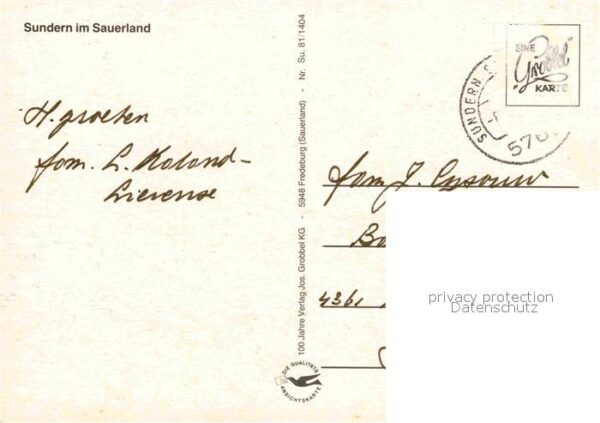 Sundern im Sauerland
H. groeten
fam. L.
fam. J.
Ba
4361
100 Jahre Verlag Jos. Grobbel KG - 5948 Fredeburg (Sauerland) - Nr. Su. 81/1404
DIE QUALITÄTS
ANSICHTSKARTE
EINE
"Grobbel"
KARTE
SUNDERN
576
privacy protection
Datenschutz